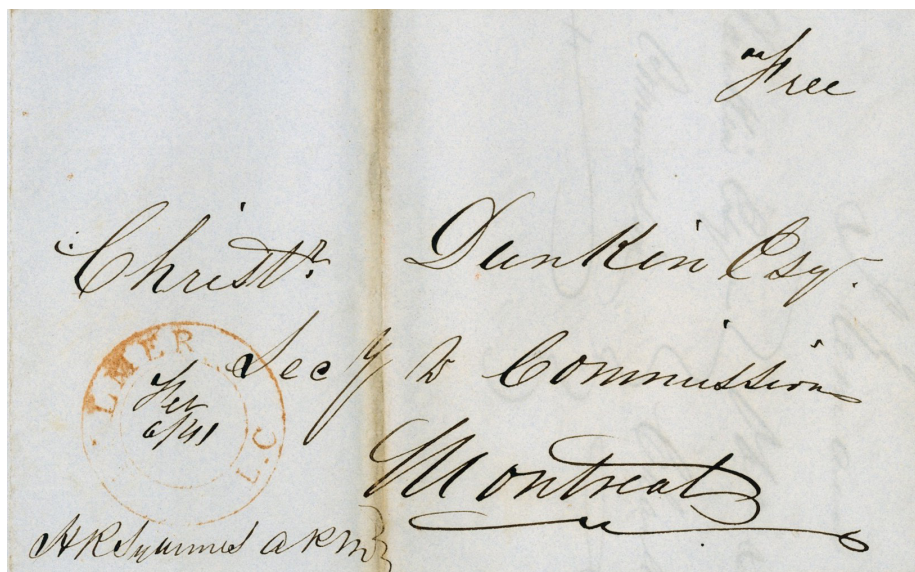 Free
Christr. Dunkin Esq.
Secy to Commission
Montreal
LMER
L.C
Feb
6/41
HRSymmes